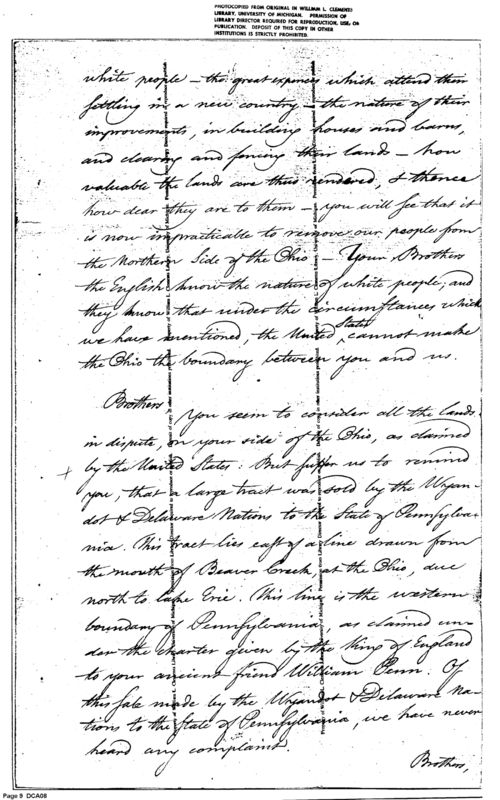 PHOTOCOPIED FROM ORIGINAL IN WILLIAM L. CLEMENTS
LIBRARY, UNIVERSITY OF MICHIGAN. PERMISSION OF
LIBRARY DIRECTOR REQUIRED FOR REPRODUCTION, USE, OR
PUBLICATION. DEPOSIT OF THIS COPY IN OTHER
INSTITUTIONS IS STRICTLY PROHIBITED.
white people – the great expences which attend their
settling in a new country – the nature of their
improvements, in building houses and barns,
and clearing and fencing their lands – how
valuable the lands are thus rendered, & thence
how dear they are to them – you will see that it
is now impracticable to remove our people from
the Northern Side of the Ohio – Your Brothers
the English know the nature of white people; and
they know that under the circumstances which
we have mentioned, the United States cannot make
the Ohio the boundary between you and us.
Brothers
You seem to consider all the lands
in dispute, on your side of the Ohio, as claimed
by the United States: But suffer us to remind
you, that a large tract was sold by the Wyan-
dot & Delaware Nations to the State of Pennsylva-
nia. This tract lies east of a line drawn from
the mouth of Beaver Creek, at the Ohio, due
north to Lake Erie. This line is the western
boundary of Pennsylvania, as claimed un-
der the charter given by the King of England
to your ancient friend William Penn. Of
this sale made by the Wyandot & Delaware Na-
tions to the State of Pennsylvania, we have never
heard any complaint.
Brothers,
Page 9 DCA08